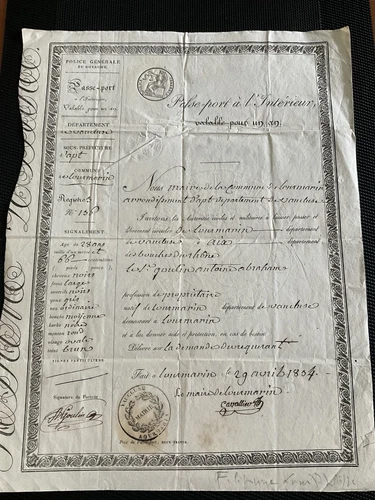 POLICE GÉNÉRALE
DU ROYAUME.
Passe-port
à l'Intérieur,
Valable pour un an.
DÉPARTEMENT
de vaucluse
SOUS-PRÉFECTURE
d'apt
COMMUNE
de lourmarin
Registre
N.° 156
SIGNALEMENT.
Agé de 28 ans
taille d'un mètre
68 centimètres
cheveux noirs
front large
sourcils noirs
yeux gris
nez ordinaire
bouche moyenne
barbe noire
menton rond
visage ovale
teint brun
SIGNES PARTICULIERS
Signature du Porteur
Passe-port à l'Intérieur,
valable pour un an.
Nous maire de la commune de lourmarin
arrondissement d'apt département de vaucluse
Invitons les Autorités civiles et militaires à laisser passer et
librement circuler de lourmarin département
de vaucluse à aix département
des bouches du rhône
le Sr. goulin antoine abraham
profession de propriétaire
natif de lourmarin département de vaucluse
demeurant à lourmarin
et à lui donner aide et protection, en cas de besoin
Délivré sur la demande du requérant
Fait à lourmarin le 29 avril 1834.
Le maire de lourmarin
Cavallier
MAIRIE
Prix du Passe-port, DEUX FRANCS.